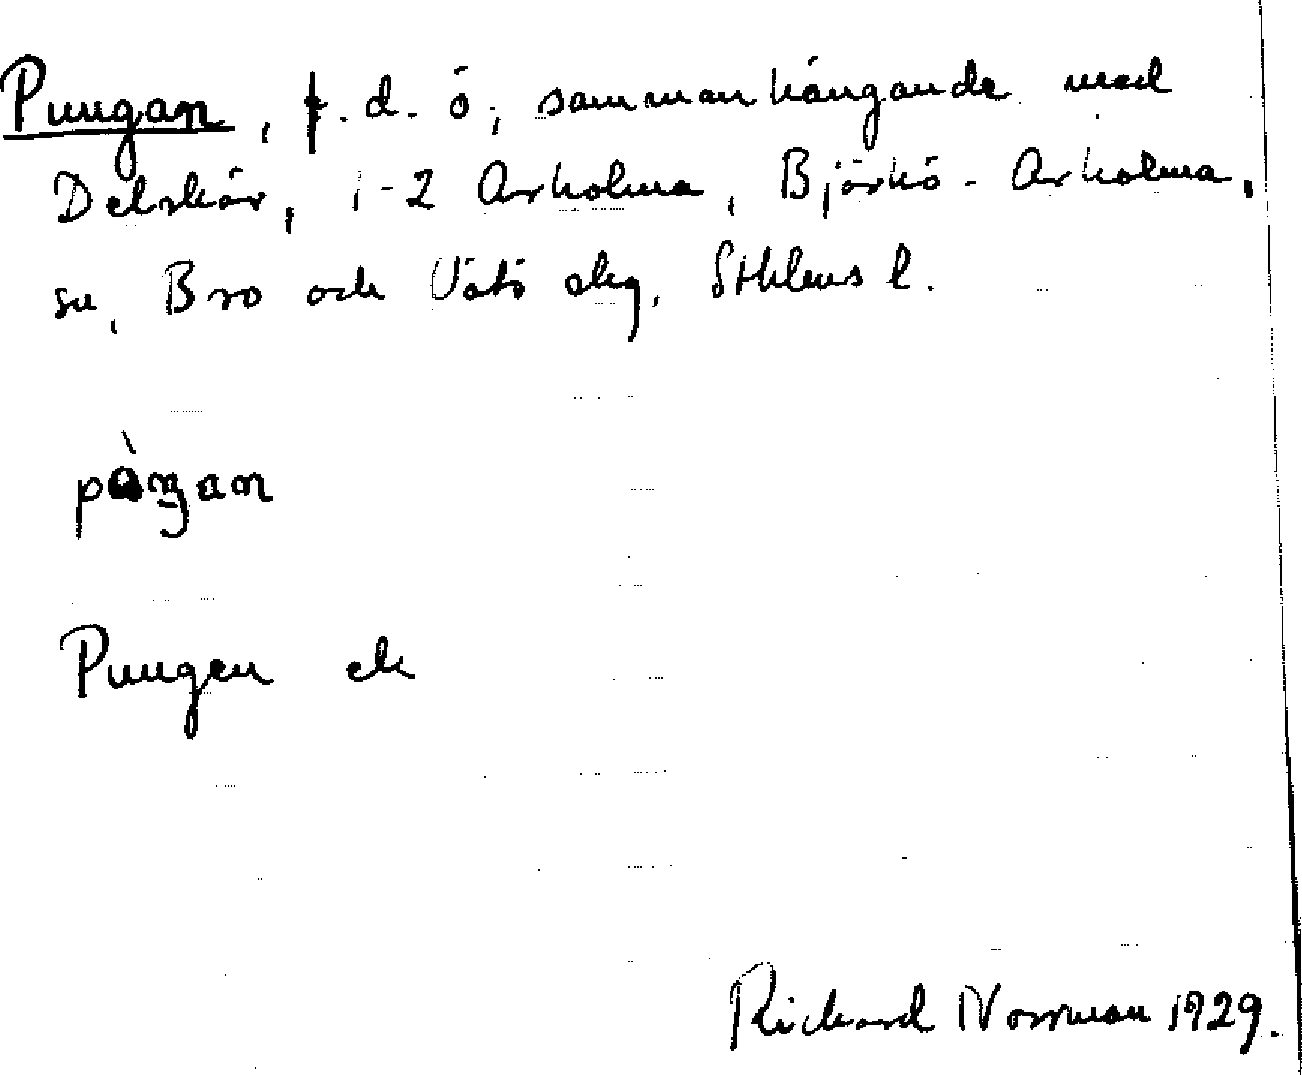 Pungan, f.d. ö, sammanhängande med
Delskär, 1-2 Arholma, Björkö-Arholma,
sn, Bro och Vätö skg, Sthlms l.
pàŋan
Pungen ek
Rickard Norrman 1929.